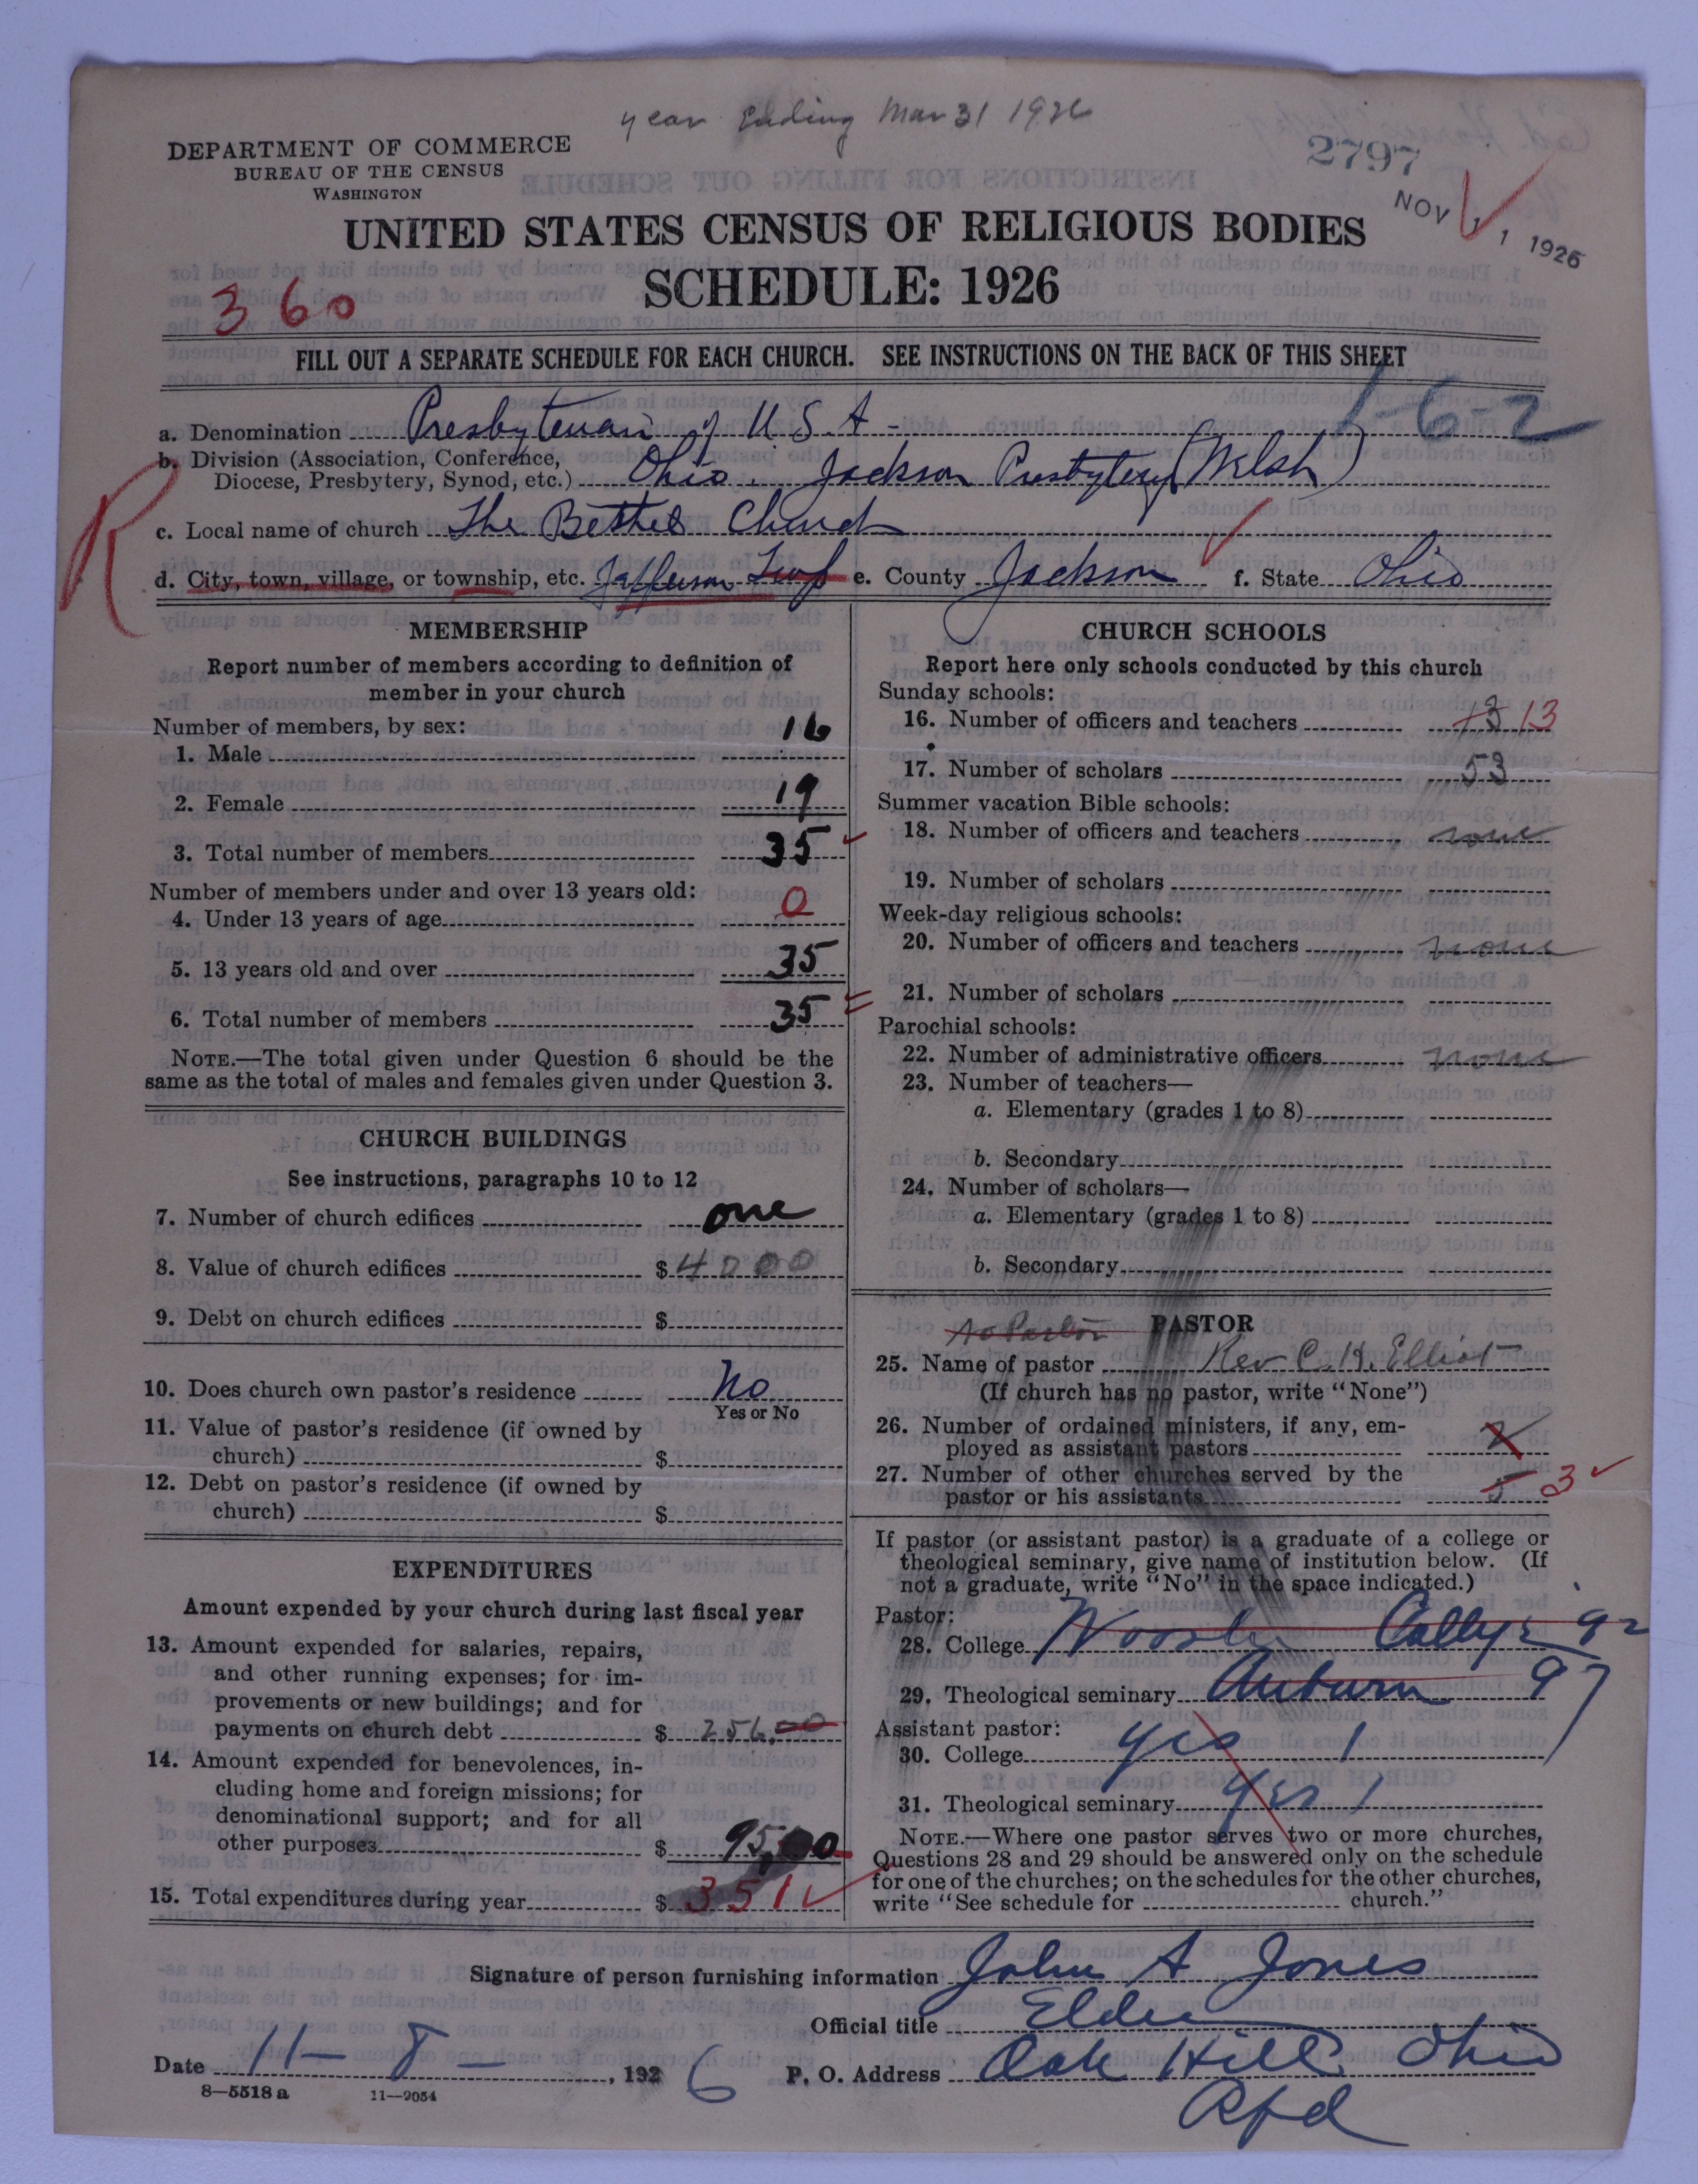 year Ending Mar 31 1926
DEPARTMENT OF COMMERCE
BUREAU OF THE CENSUS
WASHINGTON
2797
NOV 11 1926
UNITED STATES CENSUS OF RELIGIOUS BODIES
SCHEDULE: 1926
360
FILL OUT A SEPARATE SCHEDULE FOR EACH CHURCH. SEE INSTRUCTIONS ON THE BACK OF THIS SHEET
1-6-2
a. Denomination Presbyterian of U.S.A -
b. Division (Association, Conference,
Diocese, Presbytery, Synod, etc.) Ohio. Jackson Presbytery (Welsh)
R
c. Local name of church The Bethel Church
d. City, town, village, or township, etc. Jefferson Twp e. County Jackson f. State Ohio
MEMBERSHIP
Report number of members according to definition of
member in your church
Number of members, by sex:
1. Male 16
2. Female 19
3. Total number of members 35
Number of members under and over 13 years old:
4. Under 13 years of age 0
5. 13 years old and over 35
6. Total number of members 35
NOTE.—The total given under Question 6 should be the
same as the total of males and females given under Question 3.
CHURCH BUILDINGS
See instructions, paragraphs 10 to 12
7. Number of church edifices one
8. Value of church edifices $ 4000
9. Debt on church edifices $
10. Does church own pastor's residence No
Yes or No
11. Value of pastor's residence (if owned by
church) $
12. Debt on pastor's residence (if owned by
church) $
EXPENDITURES
Amount expended by your church during last fiscal year
13. Amount expended for salaries, repairs,
and other running expenses; for im-
provements or new buildings; and for
payments on church debt $ 256.00
14. Amount expended for benevolences, in-
cluding home and foreign missions; for
denominational support; and for all
other purposes $ 95,00
15. Total expenditures during year $ 351
CHURCH SCHOOLS
Report here only schools conducted by this church
Sunday schools:
16. Number of officers and teachers 13 13
17. Number of scholars 53
Summer vacation Bible schools:
18. Number of officers and teachers none
19. Number of scholars
Week-day religious schools:
20. Number of officers and teachers none
21. Number of scholars
Parochial schools:
22. Number of administrative officers none
23. Number of teachers—
a. Elementary (grades 1 to 8)
b. Secondary
24. Number of scholars—
a. Elementary (grades 1 to 8)
b. Secondary
no Pastor PASTOR
25. Name of pastor Rev C. H. Elliot
(If church has no pastor, write "None")
26. Number of ordained ministers, if any, em-
ployed as assistant pastors
27. Number of other churches served by the
pastor or his assistants 5 3
If pastor (or assistant pastor) is a graduate of a college or
theological seminary, give name of institution below. (If
not a graduate, write "No" in the space indicated.)
Pastor:
28. College Wooster College 92
29. Theological seminary Auburn 97
Assistant pastor:
30. College yes 1
31. Theological seminary yes 1
NOTE.—Where one pastor serves two or more churches,
Questions 28 and 29 should be answered only on the schedule
for one of the churches; on the schedules for the other churches,
write "See schedule for church."
Signature of person furnishing information John A Jones
Official title Elder
Date 11-8-, 1926 P. O. Address Oak Hill Ohio
Rfd
8-5518 a 11-9054